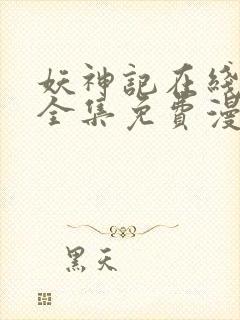 妖神記在綫
全集免費漫
黑天